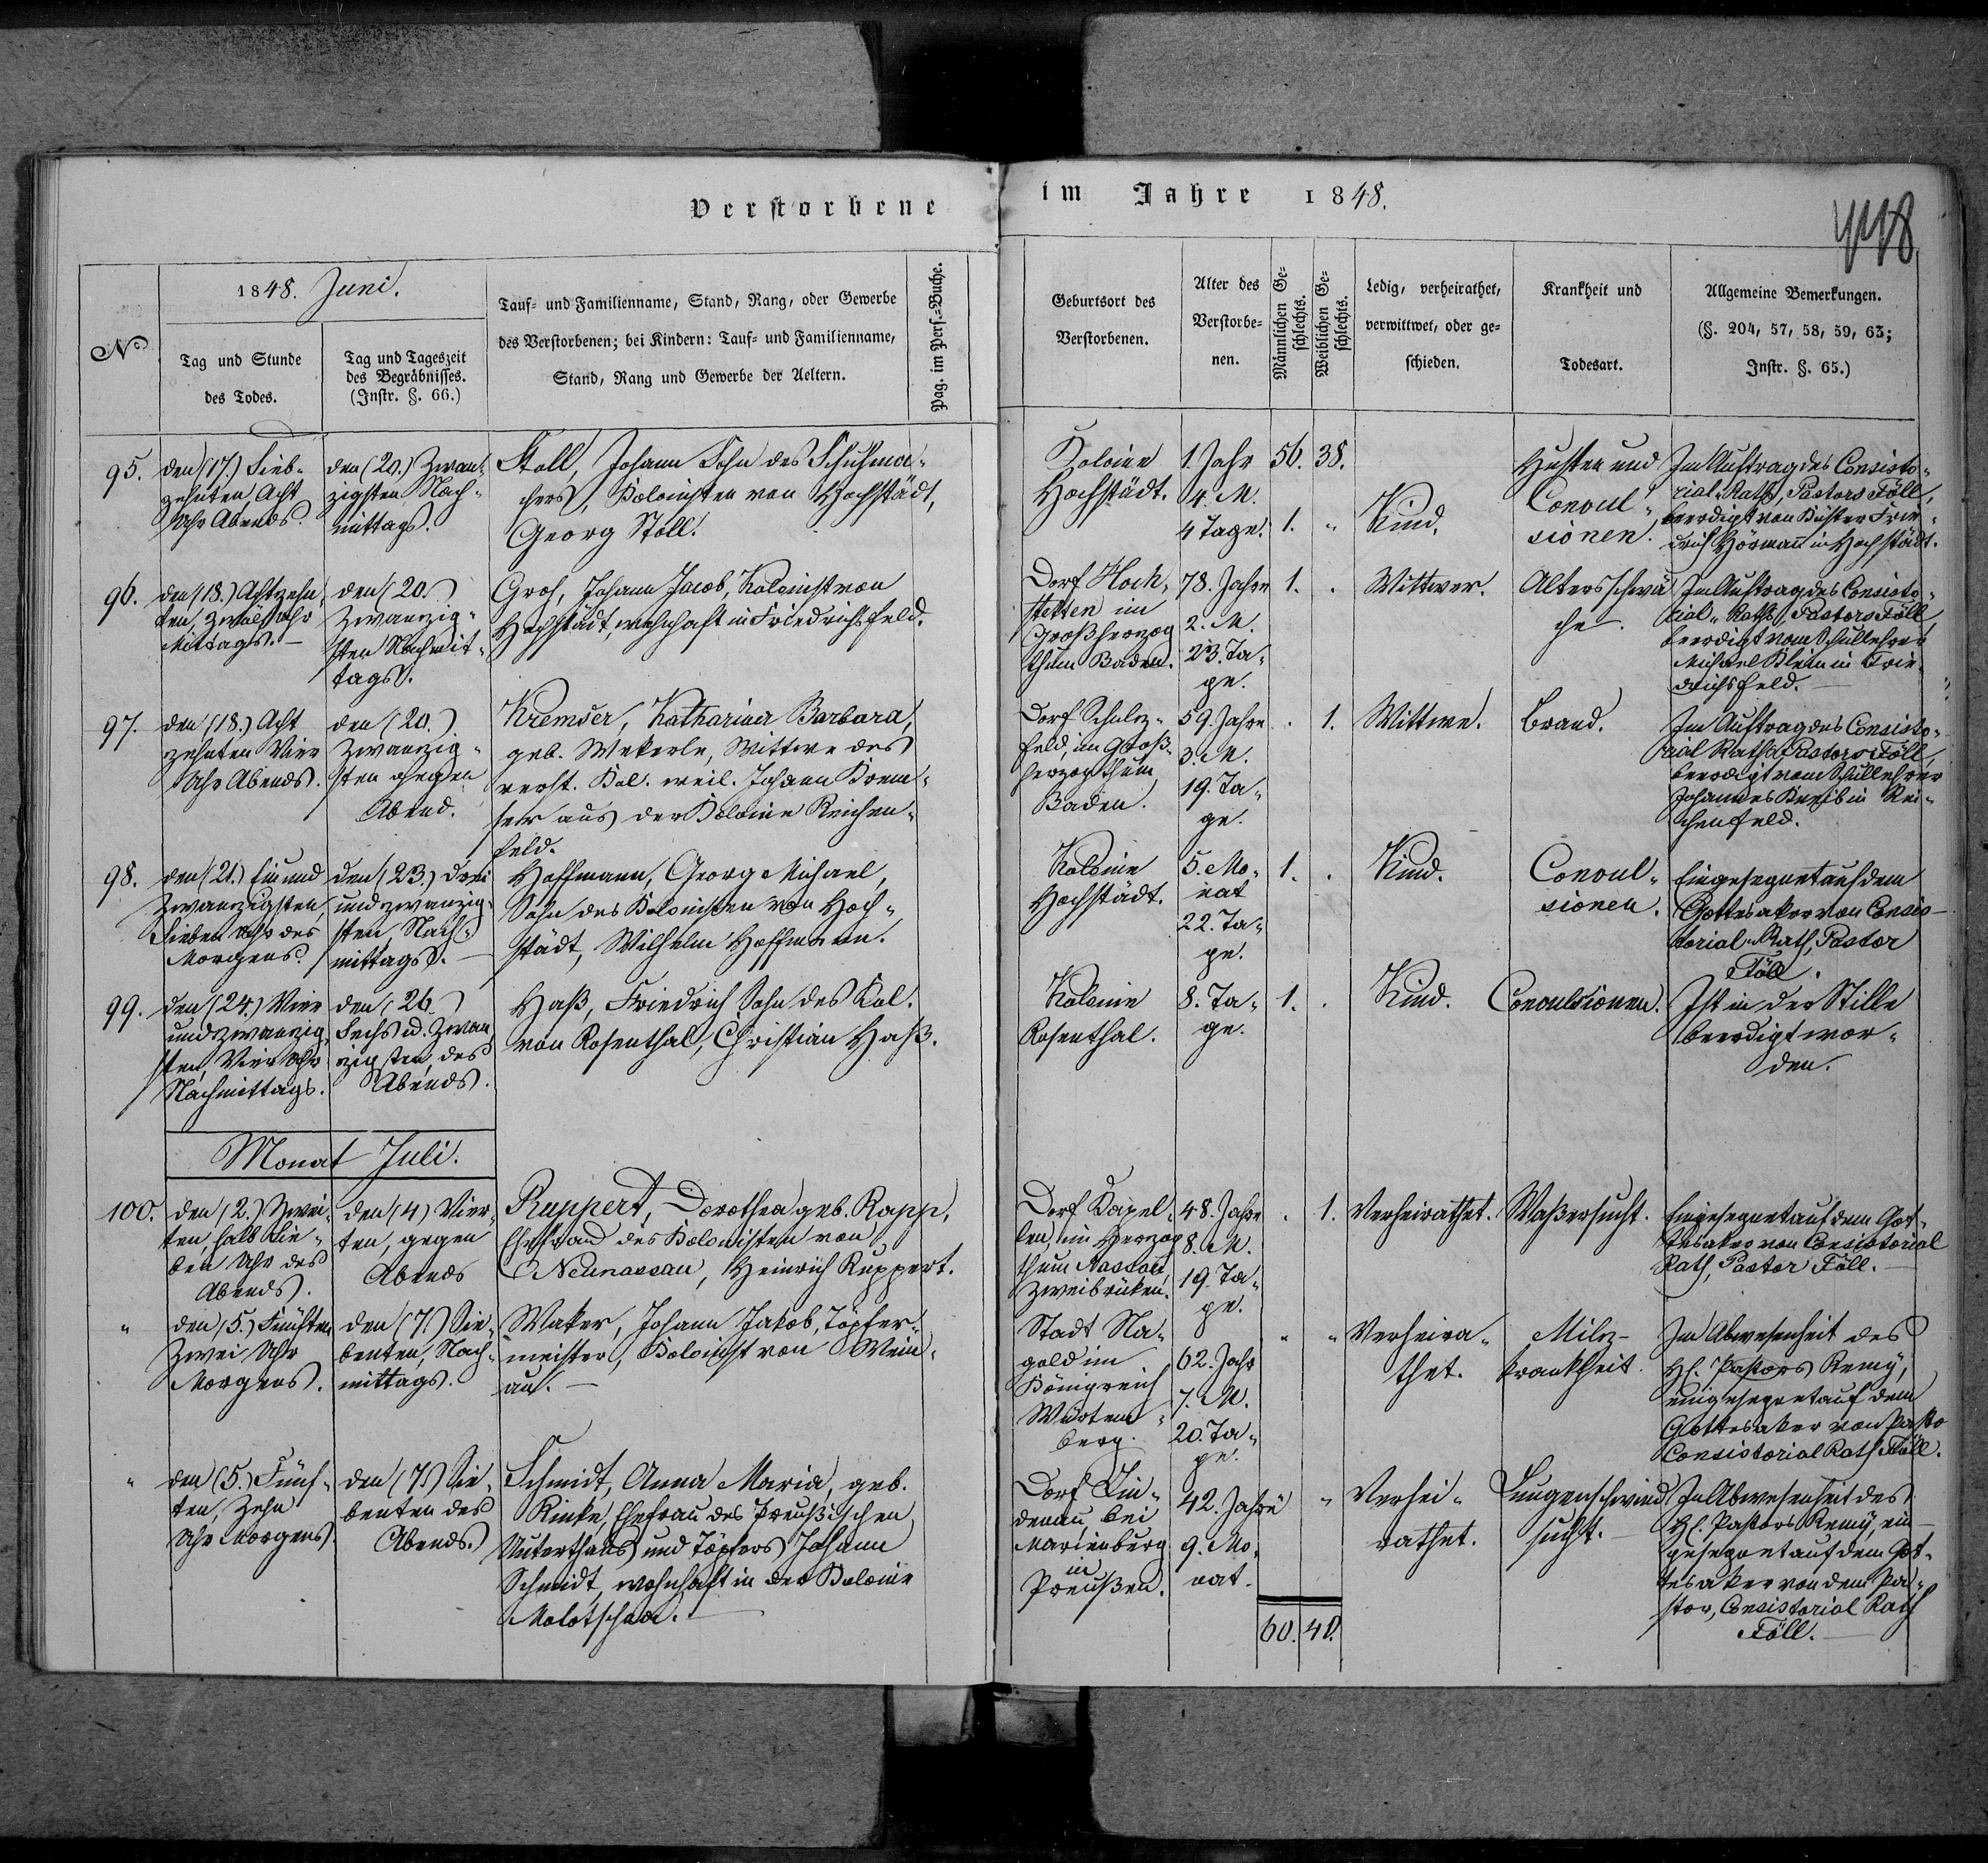 Verstorbene
im Jahre 1848.
448
No
1848. Juni.
Tag und Stunde
des Todes.
Tag und Tageszeit
des Begräbnisses.
(Instr. §. 66.)
Tauf= und Familienname, Stand, Rang, oder Gewerbe
des Verstorbenen; bei Kindern: Tauf= und Familienname,
Stand, Rang und Gewerbe der Aeltern.
Pag. im Pers.=Buche.
Geburtsort des
Verstorbenen.
Alter des
Verstorbe=
nen.
Männlichen Ge=
schlechts.
Weiblichen Ge=
schlechts.
Ledig, verheirathet,
verwittwet, oder ge=
schieden.
Krankheit und
Todesart.
Allgemeine Bemerkungen.
(§. 204, 57, 58, 59, 63;
Instr. §. 65.)
95.
den (17.) Sieb-
zehnten Acht
Uhr Abends.
den (20.) Zwan-
zigsten Nach-
mittags.
Stoll, Johann Sohn des Schuhma-
chers, Kolonisten von Hochstädt,
Georg Stoll.
Kolonie
Hochstädt.
1. Jahr
4. M.
4 Tage.
56. 38.
1. "
Kind.
Husten und
Convul-
sionen.
Im Auftrag des Consisto-
rial-Raths, Pastors Föll,
beerdigt von Küster Frie-
drich Hörmann in Hochstädt.
96.
den (18.) Achtzehn-
ten, Zwölf Uhr
Mittags. —
den (20.)
Zwanzig-
sten Nachmit-
tags.
Groh, Johann Jacob, Kolonist von
Hochstädt, wohnhaft in Friedrichsfeld.
Dorf Hoch-
stetten im
Großherzog
thum Baden.
78. Jahre
2. M.
23. Ta-
ge.
1. .
Wittwer.
Altersschwä
che.
Im Auftrag des Consisto-
rial-Raths, Pastors Föll,
beerdigt vom Schullehrer
Michael Klein in Frie-
drichsfeld. —
97.
den (18.) Acht
zehnten Vier
Uhr Abends.
den (20.)
Zwanzig-
sten gegen
Abend.
Kremser, Katharina Barbara,
geb. Wekerle, Wittwe des
verst. Kol. weil. Johann Krem-
ser aus der Kolonie Reichen-
feld.
Dorf Schulz-
feld, im Groß-
herzogthum
Baden.
59. Jahre
3. M.
19. Ta-
ge.
. 1.
Wittwe.
Brand.
Im Auftrag des Consisto-
rial Raths Pastors Föll,
beerdigt vom Schullehrer
Johannes Kreib in Rei-
chenfeld.
98.
den (21.) Ein und
Zwanzigsten,
Sieben Uhr des
Morgens.
den (23.) Drei
und zwanzig-
sten, Nach-
mittags. —
Hoffmann, Georg Michael,
Sohn des Kolonisten von Hoch-
städt, Wilhelm Hoffmann.
Kolonie
Hochstädt.
5. Mo-
nat
22. Ta-
ge.
1. .
Kind.
Convul-
sionen.
Eingesegnet auf dem
Gottesaker von Consis-
torial-Rath, Pastor
Föll.
99.
den (24.) Vier
und zwanzig-
sten, Vier Uhr
Nachmittags.
den (26.)
Sechs u. Zwan
zigsten, des
Abends.
Haß, Friedrich Sohn des Kol.
von Rosenthal, Christian Haß.
Kolonie
Rosenthal.
8. Ta-
ge.
1. .
Kind.
Convulsionen.
Ist in der Stille
beerdigt wor-
den.
Monat Juli.
100.
den (2.) Zwei-
ten, halb Sie-
ben Uhr des
Abends.
den (4) Vier-
ten, gegen
Abends
Ruppert, Dorothea geb. Rapp,
Ehefrau des Kolonisten von
Neunassau, Heinrich Ruppert.
Dorf Kapel-
len, im Herzog
thum Nassau
Zweibrüken.
48. Jahre
8. M.
19. Ta-
ge.
. 1.
Verheirathet.
Waßersucht.
Eingesegnet auf dem Got-
tesaker von Consistorial
Rath, Pastor Föll. —
"
den (5.) Fünften
Zwei Uhr
Morgens.
den (7.) Sie-
benten, Nach-
mittags.
Waker, Johann Jakob, Töpfer-
meister, Kolonist von Wein-
au. —
Stadt Na-
gold im
Königreich
Würtem-
berg.
62. Jahr
7. M.
20. Ta-
ge.
" "
Verheira-
thet.
Milz-
krankheit.
In Abwesenheit des
H. Pastors Remy,
eingesegnet auf dem
Gottesaker von Pasto
Consistorial Rath Föll.
"
den (5.) Fünf-
ten, Zehn
Uhr Morgens.
den (7.) Sie-
benten des
Abends.
Schmidt, Anna Maria, geb.
Rinke, Ehefrau des Preußischen
Unterthans und Töpfers Johann
Schmidt, wohnhaft in der Kolonie
Molotschna. —
Dorf Lin-
denau, bei
Marienburg
in
Preußen.
42. Jahre
9. Mo-
nat.
"
Verhei-
rathet.
Lungenschwind
sucht. —
In Abwesenheit des
H. Pastors Remy, ein-
gesegnet auf dem Got-
tesaker von dem Pa-
stor, Consistorial Rath
Föll. —
60. 40.